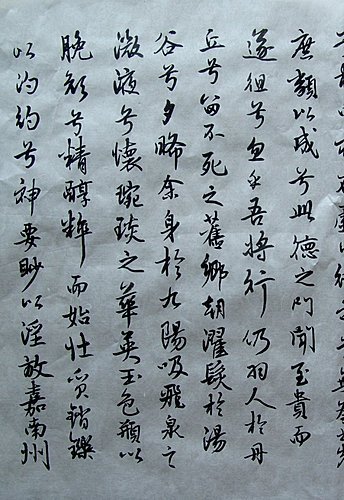 庶類以成兮此德之門聞至貴而
遂徂兮忽乎吾將行仍羽人於丹
丘兮留不死之舊鄉朝濯髮於湯
谷兮夕晞余身於九陽吸飛泉之
微液兮懷琬琰之華英玉色頩以
脕顏兮精醇粹而始壯質銷鑠
以汋約兮神要眇以淫放嘉南州